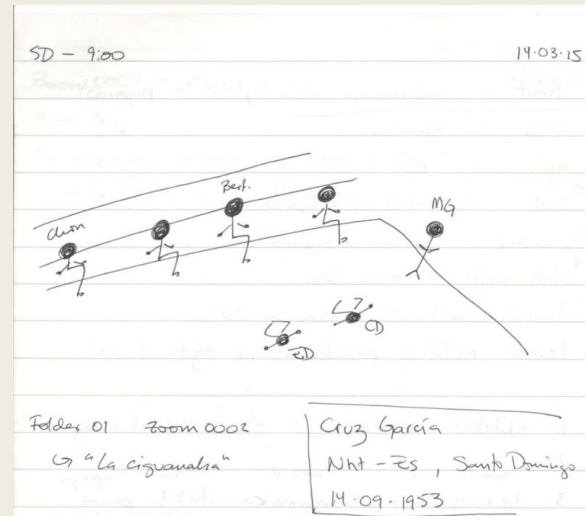 SD - 9:00
14.03.15
Chon
Bert.
MG
CD
ED
Folder 01 Zoom 0002
↳ "La ciguanaba"
Cruz García
Nht - Es, Santo Domingo
14-09-1953